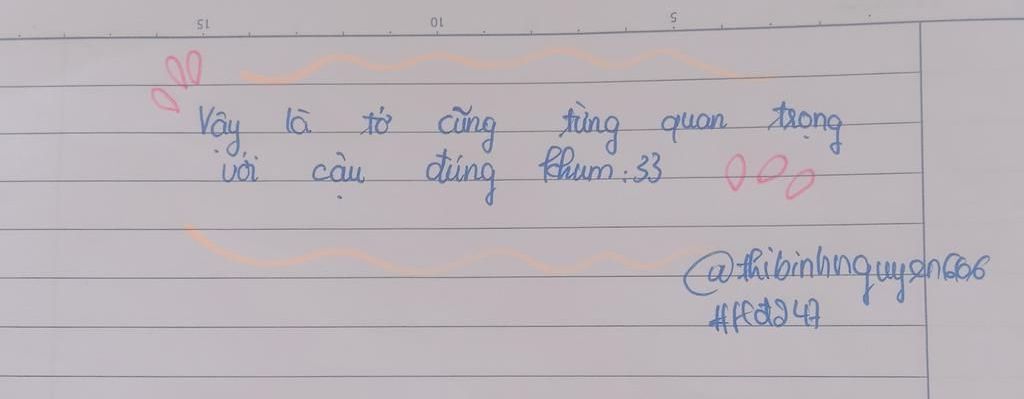 15 10 5
Vậy là tớ cũng từng quan trọng
với cậu đúng khum:33
@thibinhnguyen606